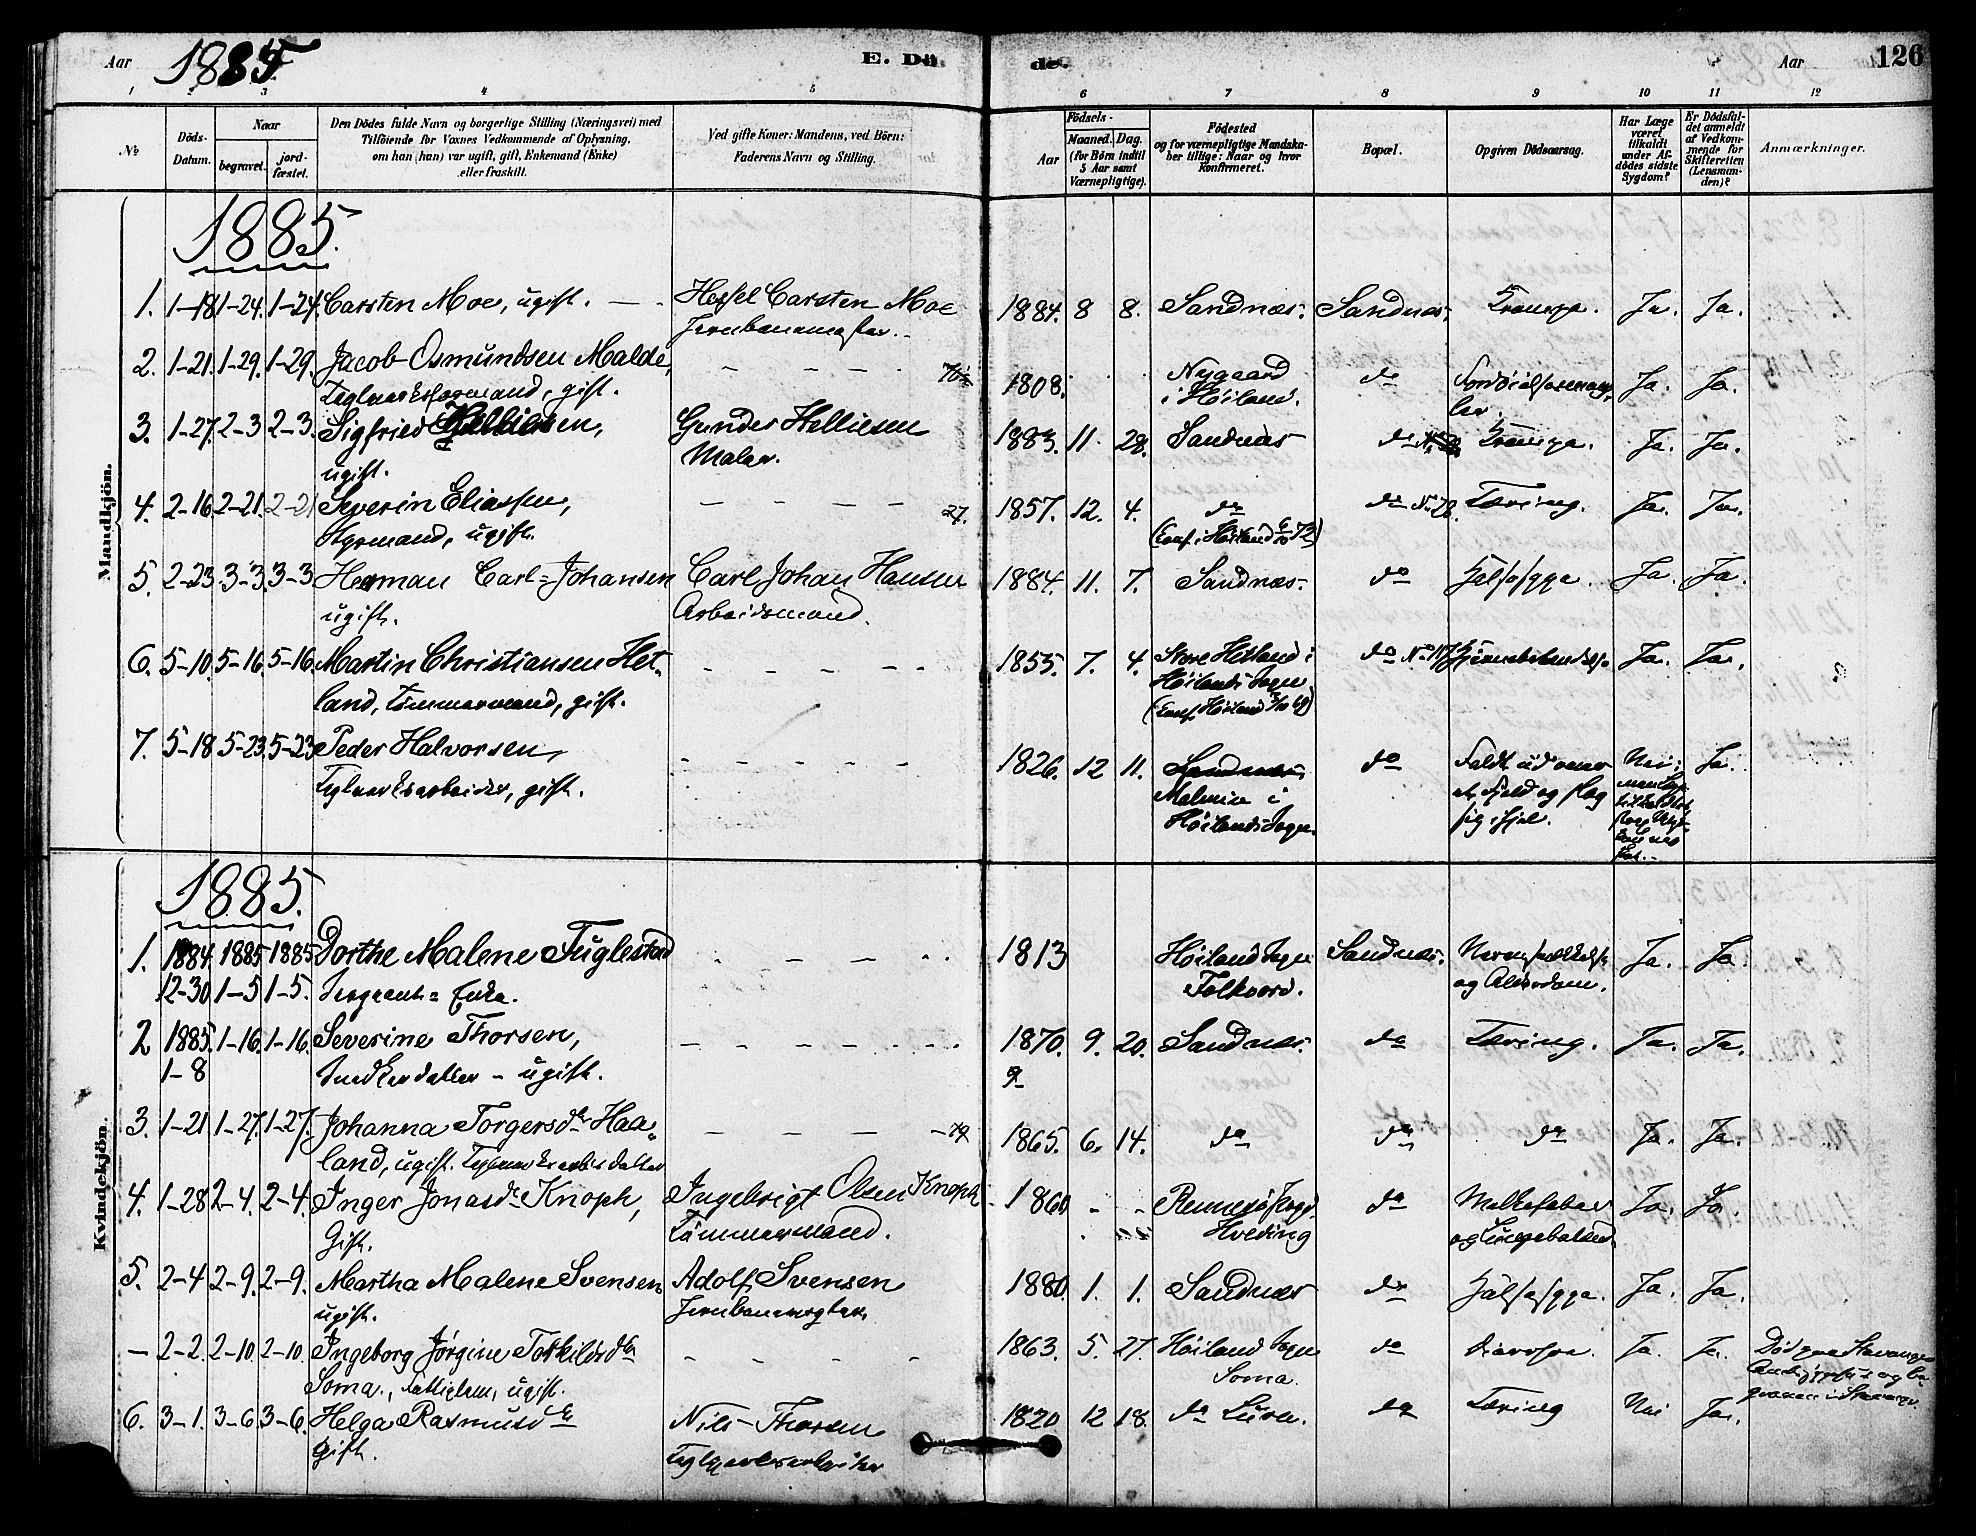 Aar 1885 E. Dö de. Aar 126
1 2 3 4 5 6 7 8 9 10 11 12
No
Döds-Datum.
Naar
begravet.
jordfæstet.
Den Dödes fulde Navn og borgerlige Stilling (Næringsvei) med
Tilföiende for Voxnes Vedkommende af Oplysning,
om han (hun) var ugift, gift, Enkemand (Enke)
eller fraskilt.
Ved gifte Koner: Mandens, ved Börn:
Faderens Navn og Stilling.
Födsels-
Aar
Maaned.
Dag.
(for Börn indtil
5 Aar samt
Værnepligtige).
Födested
og for værnepligtige Mandska-
ber tillige: Naar og hvor
konfirmeret.
Bopæl.
Opgiven Dödsaarsag.
Har Læge
været
tilkaldt
under Af-
dödes sidste
Sygdom?
Er Dödsfal-
det anmeldt
af Vedkom-
mende for
Skifteretten
(Lensman-
den)?
Anmærkninger.
Mandkjön.
1885.
1. 1-18 1-24. 1-24. Carsten Moe, ugift. Carsten Moe 1884. 8 8. Sandnæs. Sandnæs. Krampe. Ja. Ja.
2. 1-21. 1-29. 1-29. Jacob Osmundsen Malde, 1808. Nygaard do Ja. Ja.
gift. i Höiland.
3. 1-27. 2-3 2-3. Sigfried Helliesen, Gunder Helliesen 1883. 11. 28. Sandnæs do Krampe. Ja. Ja.
ugift. Maler.
4. 2-16. 2-21. 2-21 Severin Eliassen, 27. 1857. 12. 4. do do No 78. Tæring. Ja. Ja.
Styrmand, ugift. (Conf. i Höiland 6/10 72)
5. 2-23. 3-3. 3-3 Herman Carl-Johansen Carl Johan Hansen 1884. 11. 7. Sandnæs. do Halssyge. Ja. Ja.
ugift. Arbeidsmand.
6. 5-10. 5-16. 5-16. Martin Christiansen Het- 1855. 7. 4. Store Hetland i do Ja. Ja.
land, Tömmermand, gift. Höilands Sogn
7. 5-18 5-23. 5-23 Peder Halvorsen, 1826. 12 11. Sandnæs. do Faldt ud over Nei; Ja.
Teglværksarbeider, gift. i et Fjeld og slog
Höilands Sogn. sig ihjel.
Kvindekjön.
1885.
1. 1884 1885 1885 Dorthe Malene Fuglestad 1813 Höiland Sogn Sandnæs. Ja. Ja.
12-30 1-5 1-5. Sergeant-Enke. Folkvord. og Alderdom.
2 1885. 1-16. 1-16. Severine Thorsen, 1870. 9. 20. Sandnæs. do Tæring. Ja. Ja.
1-8 Snedkerdatter - ugift. 9
3. 1-21 1-27. 1-27. Johanna Torgersdr Haa- 19 1865. 6. 14. do do do Ja. Ja.
land, ugift.
4. 1-28 2-4. 2-4. Inger Jonasdr Knoph, Ingebrigt Olsen Knoph 1860 Rennesö do Ja. Ja.
Gift. Tömmermand. Hviding
5. 2-4 2-9. 2-9. Martha Malene Svensen Adolf Svensen 1880. 1. 1. Sandnæs do Halssyge. Ja. Ja.
ugift.
- 2-2. 2-10. 2-10. Ingeborg Jørgine Torkildsdr 1863. 5. 27. Höiland Sogn do Ja. Ja. Död paa Stavanger
Soma, ugift. Soma.
6. 3-1. 3-6 3-6. Helga Rasmusdr Nils Thorsen 1820 12 18. do Lura. do Tæring Nei Ja.
Gift. Teglværksarbeider